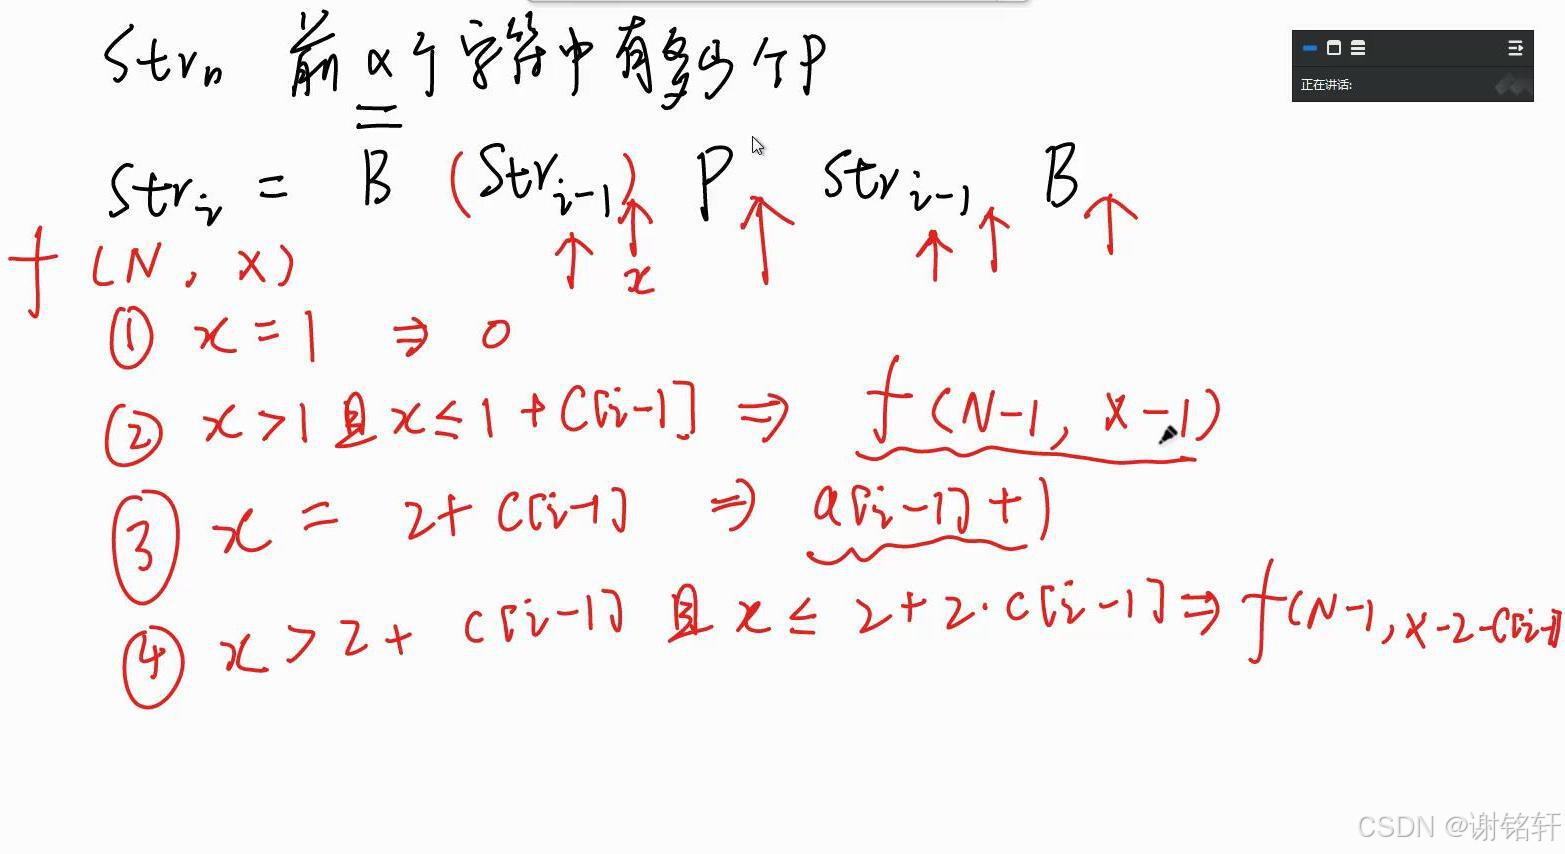 Strn 前x个字符中有多少个P
正在讲话:
Stri = B (Stri-1) P Stri-1 B
f(N, X)
x
① x=1 ⇒ 0
② x>1 且 x≤1+C[i-1] ⇒ f(N-1, X-1)
③ x = 2+C[i-1] ⇒ a[i-1]+1
④ x>2+C[i-1] 且 x≤2+2·C[i-1] ⇒ f(N-1, X-2-C[i-1]
CSDN @谢铭轩